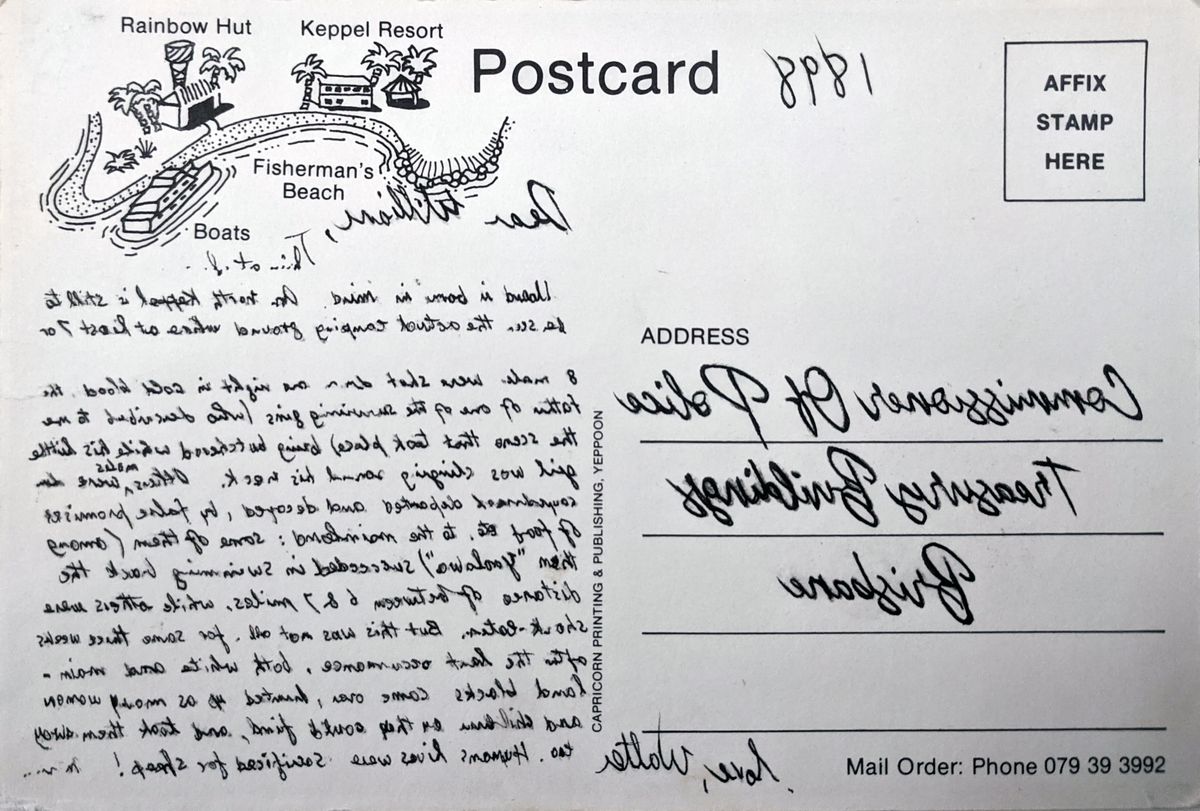 Rainbow Hut
Keppel Resort
Postcard
1898
AFFIX
STAMP
HERE
Fisherman's
Beach
Boats
Dear William,
is born in mind. On North Keppel is still to
be seen the actual camping ground where at least 7 or
8 males were shot down one night in cold blood, the
father of one of the surviving gins (who described to me
the scene that took place) being butchered while his little
girl was clinging round his neck. Others, males were
deported and decoyed, by false promises
of food etc, to the mainland: some of them (among
then "Yoolowa") succeeded in swimming back the
distance of between 6 & 7 miles, while others were
shark-eaten. But this was not all. for some three weeks
after the last occurrance, both white and main-
land blacks came over, hunted up as many women
and children as they could find, and took them away
too. Humans lives were sacrificed for sheep!
Love, Walter
CAPRICORN PRINTING & PUBLISHING, YEPPOON
ADDRESS
Commissioner Of Police
Treasury Buildings
Brisbane
Mail Order: Phone 079 39 3992